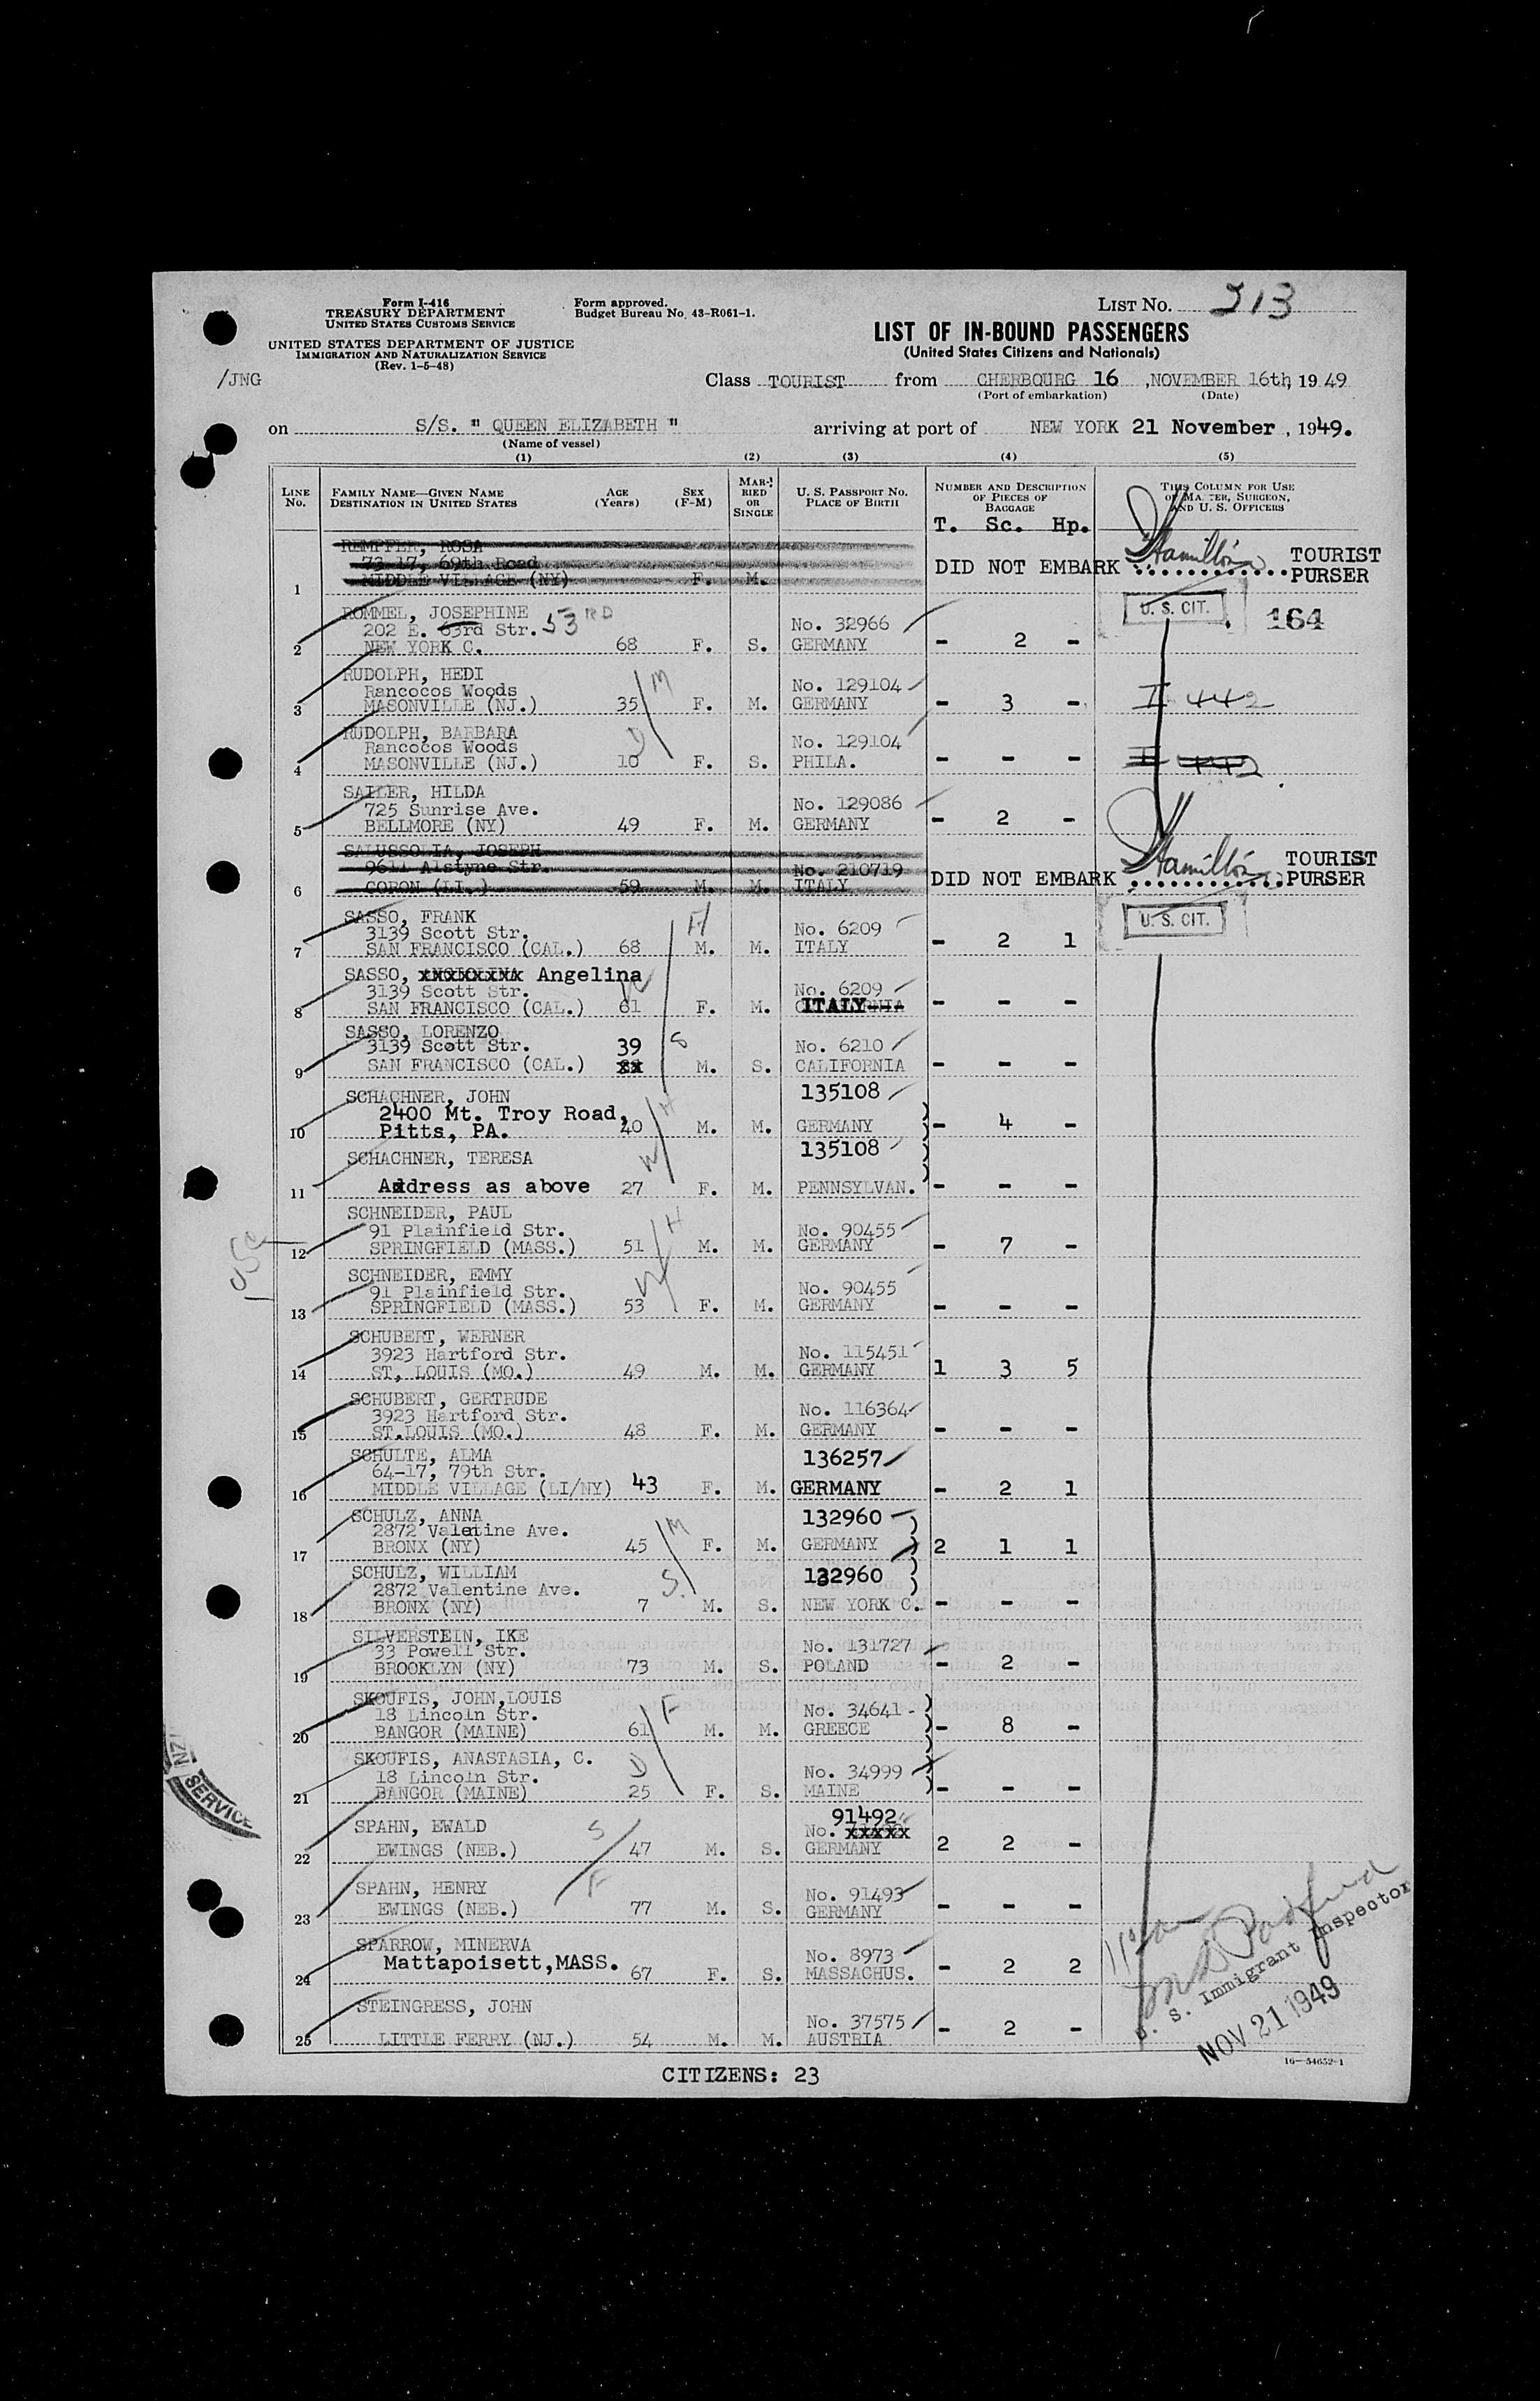 Form I-416
TREASURY DEPARTMENT
UNITED STATES CUSTOMS SERVICE
UNITED STATES DEPARTMENT OF JUSTICE
IMMIGRATION AND NATURALIZATION SERVICE
(Rev. 1-5-48)
Form approved.
Budget Bureau No. 43-R061-1.
LIST NO. 213
LIST OF IN-BOUND PASSENGERS
(United States Citizens and Nationals)
/JNG
Class TOURIST from CHERBOURG 16 , NOVEMBER 16th, 1949
(Port of embarkation) (Date)
on S/S. " QUEEN ELIZABETH " arriving at port of NEW YORK 21 November , 1949.
(Name of vessel)
(1) (2) (3) (4) (5)
LINE NO. FAMILY NAME—GIVEN NAME DESTINATION IN UNITED STATES AGE (Years) SEX (F-M) MARRIED OR SINGLE U. S. PASSPORT NO. PLACE OF BIRTH NUMBER AND DESCRIPTION OF PIECES OF BAGGAGE THIS COLUMN FOR USE OF MASTER, SURGEON, AND U. S. OFFICERS
T. Sc. Hp.
REMPFER, ROSA
73-17, 69th Road DID NOT EMBARK Hamilton TOURIST PURSER
1 MIDDLE VILLAGE (NY) F. M.
ROMMEL, JOSEPHINE U. S. CIT. 164
202 E. 63rd Str. 53RD No. 32966
2 NEW YORK C. 68 F. S. GERMANY - 2 -
RUDOLPH, HEDI
Rancocos Woods No. 129104
3 MASONVILLE (NJ.) 35 M F. M. GERMANY - 3 - I 442
RUDOLPH, BARBARA
Rancocos Woods No. 129104
4 MASONVILLE (NJ.) 10 D F. S. PHILA. - - - I 442
SAILER, HILDA
725 Sunrise Ave. No. 129086
5 BELLMORE (NY) 49 F. M. GERMANY - 2 -
SALUSSOLIA, JOSEPH
9611 Alstyne Str. No. 210719 Hamilton TOURIST
6 CORON (LI.) 59 M. M. ITALY DID NOT EMBARK PURSER
SASSO, FRANK U. S. CIT.
3139 Scott Str. No. 6209
7 SAN FRANCISCO (CAL.) 68 F M. M. ITALY - 2 1
SASSO, xxxxxxxx Angelina
3139 Scott Str. No. 6209
8 SAN FRANCISCO (CAL.) 61 F. M. ITALY--- - - -
SASSO, LORENZO
3139 Scott Str. 39 S No. 6210
9 SAN FRANCISCO (CAL.) xx M. S. CALIFORNIA - - -
SCHACHNER, JOHN 135108
2400 Mt. Troy Road,
10 Pitts, PA. 40 H M. M. GERMANY - 4 -
SCHACHNER, TERESA 135108
11 Address as above 27 W F. M. PENNSYLVAN. - - -
SCHNEIDER, PAUL
91 Plainfield Str. No. 90455
USC 12 SPRINGFIELD (MASS.) 51 H M. M. GERMANY - 7 -
SCHNEIDER, EMMY
91 Plainfield Str. No. 90455
13 SPRINGFIELD (MASS.) 53 W F. M. GERMANY - - -
SCHUBERT, WERNER
3923 Hartford Str. No. 115451
14 ST. LOUIS (MO.) 49 M. M. GERMANY 1 3 5
SCHUBERT, GERTRUDE
3923 Hartford Str. No. 116364
15 ST.LOUIS (MO.) 48 F. M. GERMANY - - -
SCHULTE, ALMA 136257
64-17, 79th Str.
16 MIDDLE VILLAGE (LI/NY) 43 F. M. GERMANY - 2 1
SCHULZ, ANNA 132960
2872 Valetine Ave.
17 BRONX (NY) 45 M F. M. GERMANY 2 1 1
SCHULZ, WILLIAM 132960
2872 Valentine Ave.
18 BRONX (NY) 7 S. M. S. NEW YORK C. - - -
SILVERSTEIN, IKE
33 Powell Str. No. 131727
19 BROOKLYN (NY) 73 M. S. POLAND - 2 -
SKOUFIS, JOHN,LOUIS
18 Lincoln Str. No. 34641
20 BANGOR (MAINE) 61 F M. M. GREECE - 8 -
SKOUFIS, ANASTASIA, C.
18 Lincoln Str. No. 34999
21 BANGOR (MAINE) 25 D F. S. MAINE - - -
SPAHN, EWALD 91492
No. xxxxx
22 EWINGS (NEB.) S 47 M. S. GERMANY 2 2 -
SPAHN, HENRY No. 91493
23 EWINGS (NEB.) F 77 M. S. GERMANY - - -
SPARROW, MINERVA
Mattapoisett,MASS. No. 8973
24 67 F. S. MASSACHUS. - 2 2
STEINGRESS, JOHN No. 37575
25 LITTLE FERRY (NJ.) 54 M. M. AUSTRIA - 2 -
U. S. Immigrant Inspector
NOV 21 1949
SERVICE
16-54652-1
CITIZENS: 23